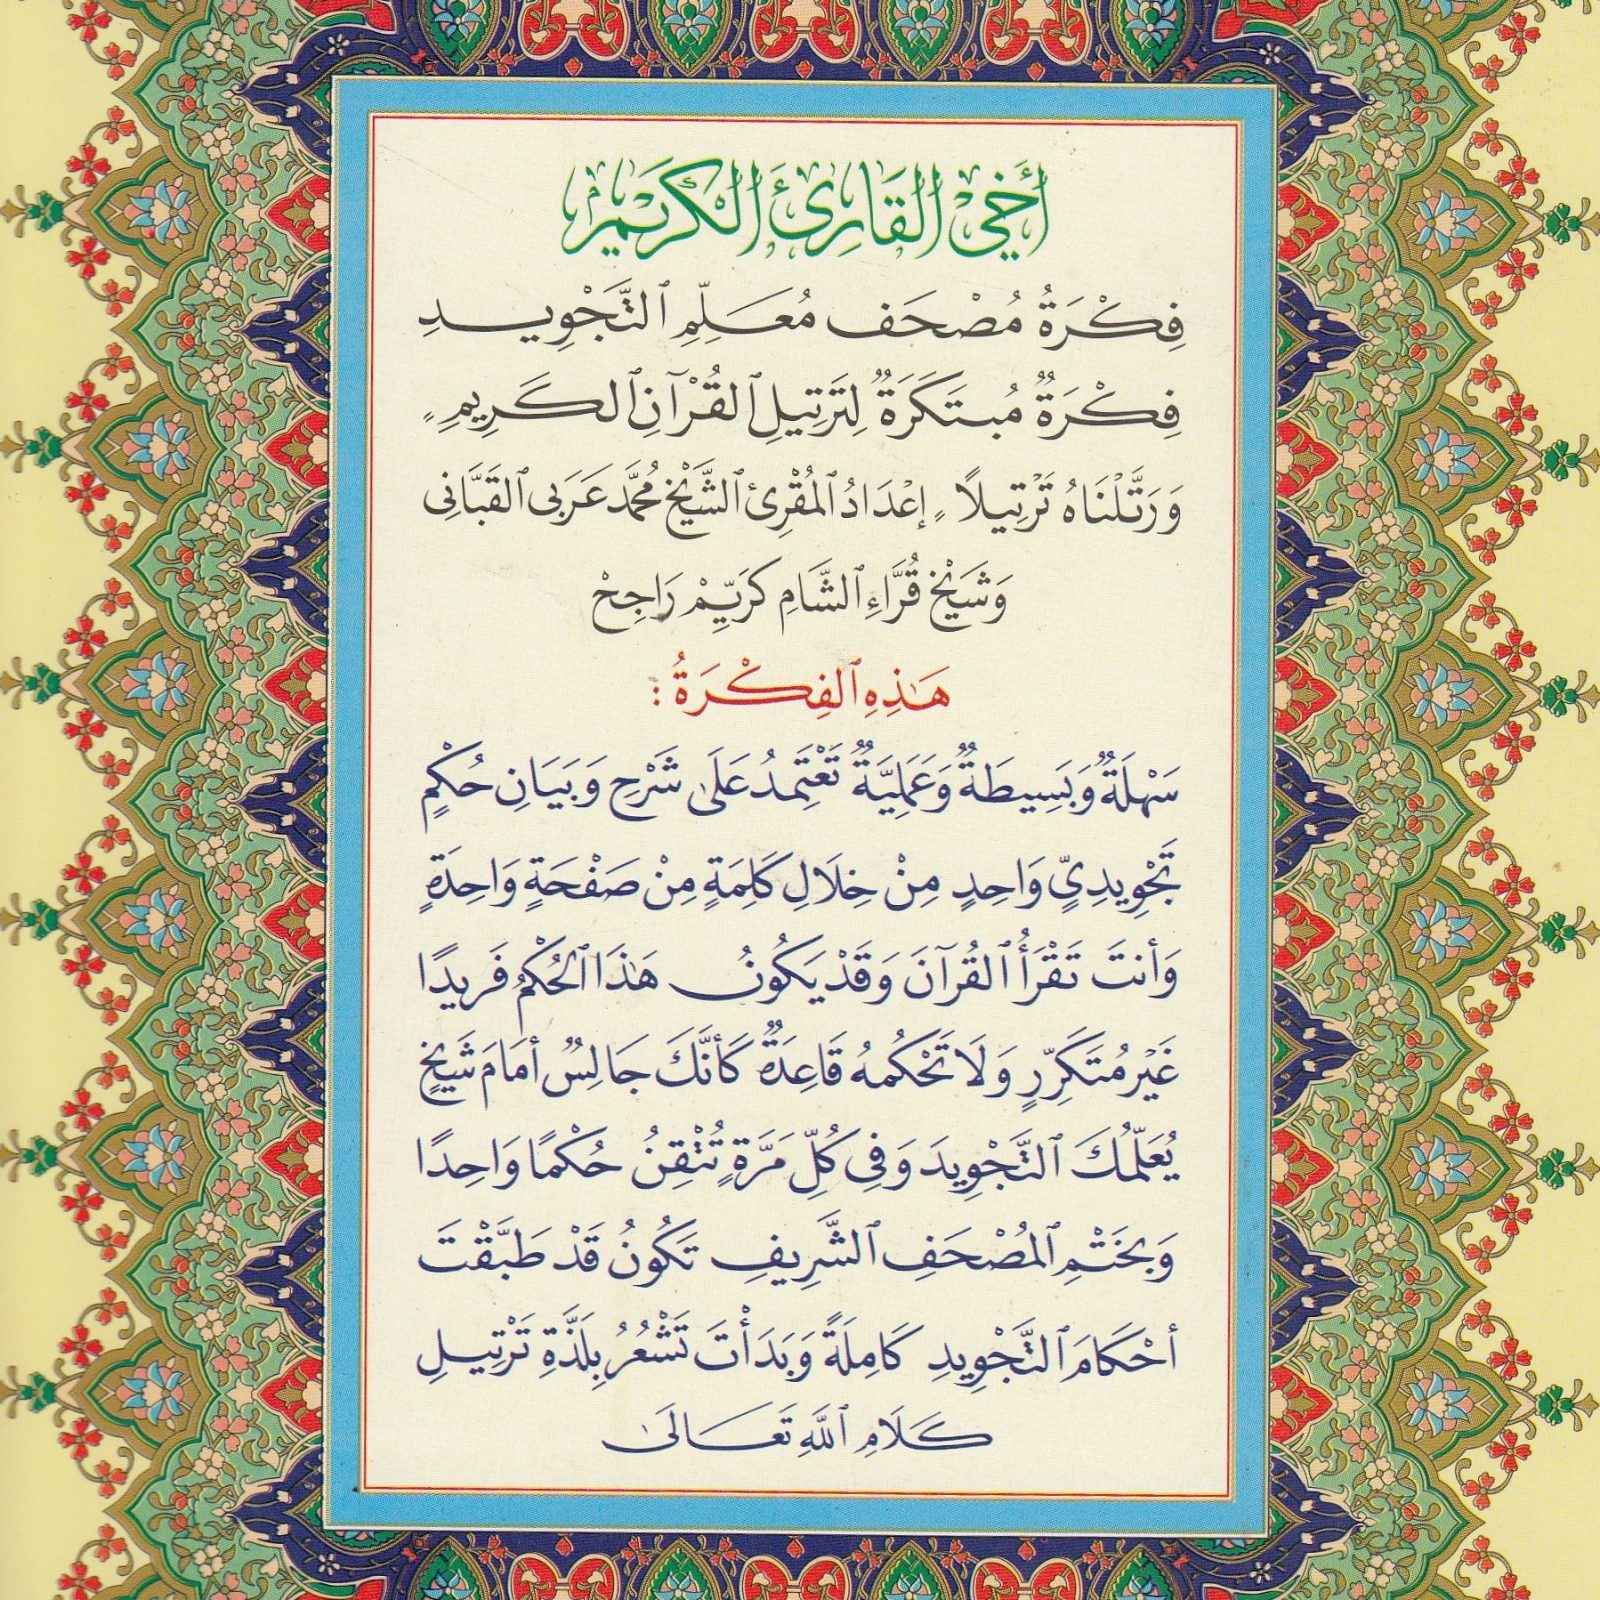 أَخِي الْقَارِئَ الْكَرِيْمَ
فِكْرَةُ مُصْحَف مُعَلِّمِ ٱلتَّجْوِيدِ
فِكْرَةٌ مُبتَكَرَةٌ لِتَرتِيلِ ٱلقُرْآنِ ٱلكَرِيمِ
وَرَتَّلْنَاهُ تَرْتِيلاً إِعْدَادُ ٱلمُقْرِئ ٱلشَّيْخ مُحَمَّد عَرَبي ٱلقَبَّاني
وَشَيْخ قُرَّاءِ ٱلشَّامِ كَرَيِّمْ رَاجِحْ
هَٰذِهِ ٱلفِكْرَةُ :
سَهْلَةٌ وَبَسِيطَةٌ وَعَمَلِيَّةٌ تَعْتَمِدُ عَلَىٰ شَرْحِ وَبَيَانِ حُكْمٍ
تَجْوِيدِيٍّ وَاحِدٍ مِنْ خِلَالِ كَلِمَةٍ مِنْ صَفْحَةٍ وَاحِدَةٍ
وَأَنتَ تَقْرَأُ ٱلقُرآنَ وَقَدْ يَكُونُ هَٰذَا ٱلحُكْمُ فَرِيدًا
غَيْرَ مُتَكَرِّرٍ وَلَا تَحْكُمُهُ قَاعِدَةٌ كَأَنَّكَ جَالِسٌ أَمَامَ شَيْخٍ
يُعَلِّمُكَ ٱلتَّجْوِيدَ وَفِي كُلِّ مَرَّةٍ تُتْقِنُ حُكْمًا وَاحِدًا
وَبِخَتْمِ ٱلمُصْحَفِ ٱلشَّرِيفِ تَكُونُ قَدْ طَبَّقْتَ
أَحْكَامَ ٱلتَّجْوِيدِ كَامِلَةً وَبَدَأْتَ تَشْعُرُ بِلَذَّةِ تَرْتِيلِ
كَلَامِ ٱللَّهِ تَعَالَىٰ